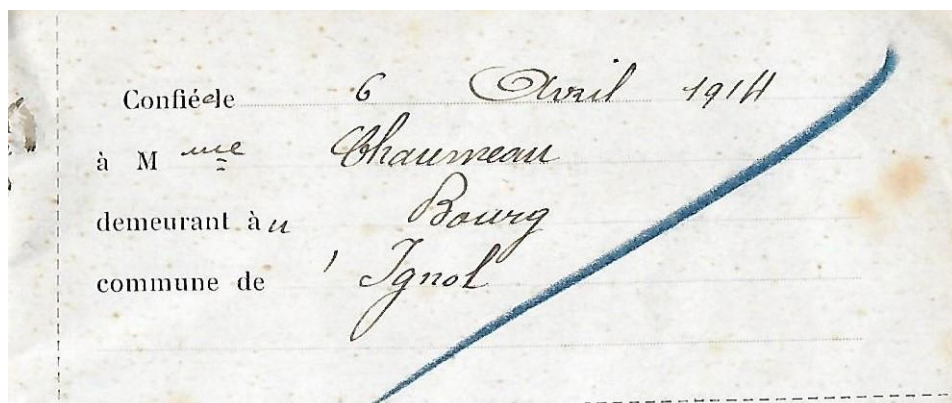 Confiée le 6 Avril 1914
à Mme Chaumeau
demeurant à u Bourg
commune de ' Ignol